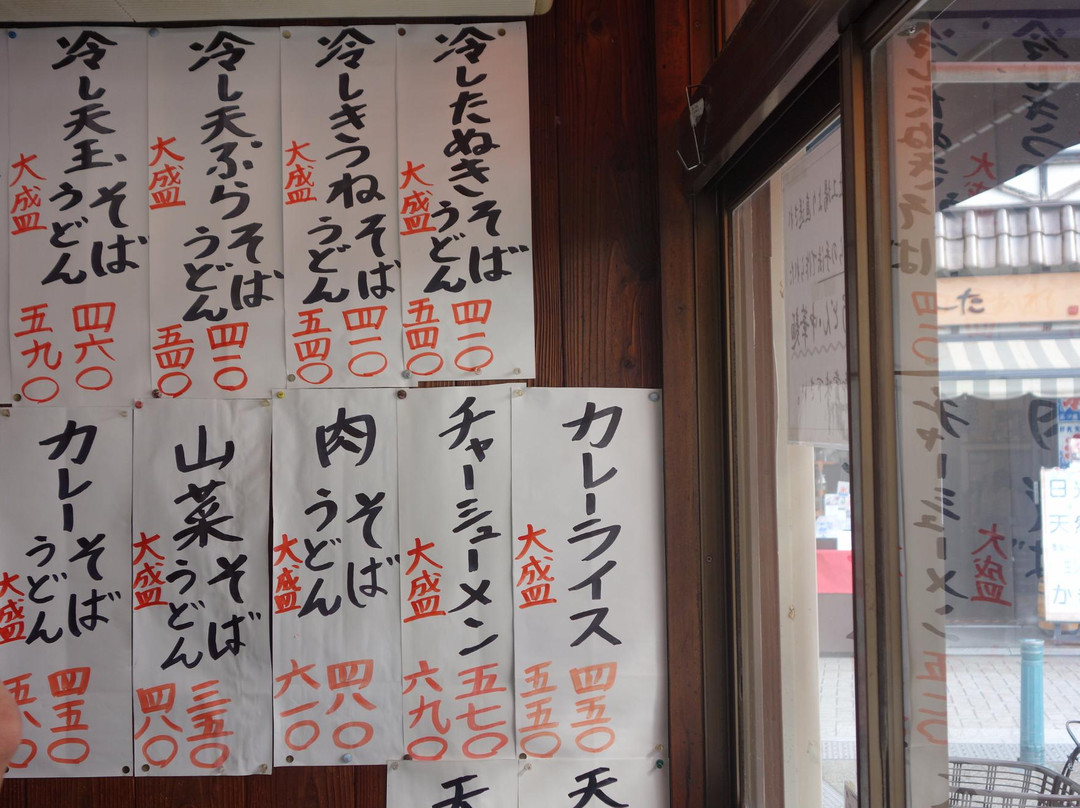 冷したぬきそば
うどん
四一〇
大盛
五四〇
冷しきつねそば
うどん
四一〇
大盛
五四〇
冷し天ぷらそば
うどん
四一〇
大盛
五四〇
冷し天玉そば
うどん
四六〇
大盛
五九〇
カレーライス
四五〇
大盛
五五〇
チャーシューメン
五七〇
大盛
六九〇
肉そば
うどん
四八〇
大盛
六一〇
山菜そば
うどん
三五〇
大盛
四八〇
カレーそば
うどん
四五〇
大盛
五八〇
天
天